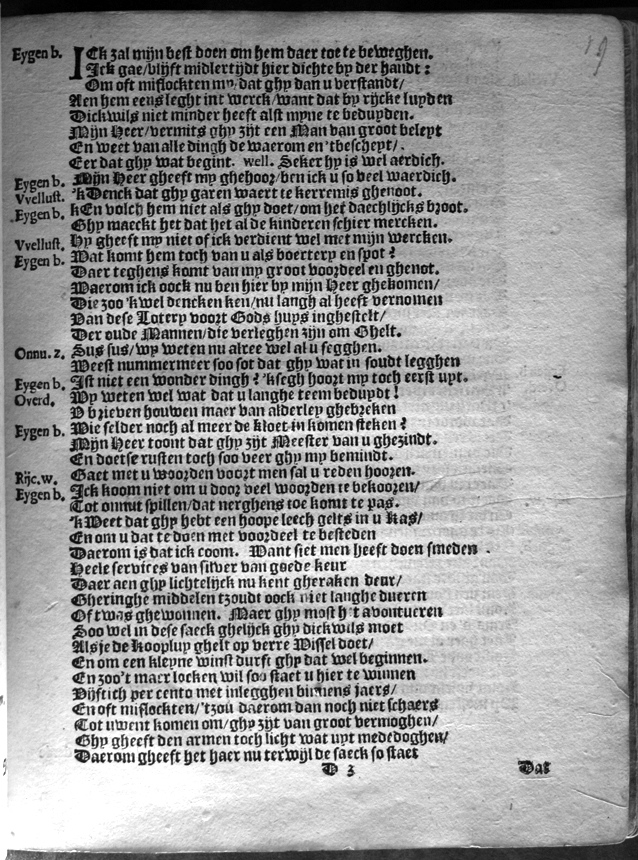 19
Eygen b. ICk zal mijn best doen om hem daer toe te beweghen.
Ick gae/blijft midlertijdt hier dichte by der handt:
Om oft mislockten my/dat ghy dan u verstandt/
Aen hem eens leght int werck/want dat by rijcke luyden
Dickwils niet minder heeft alst myne te beduyden.
Mijn Heer/vermits ghy zijt een Man van groot beleyt
En weet van alle dingh de waerom en 'tbescheyt/.
Eer dat ghy wat begint. well. Seker hy is wel aerdich.
Eygen b. Mijn Heer gheeft my ghehoor/ben ick u so veel waerdich.
Vvellust. 'k Denck dat ghy garen waert te kerremis ghenoot.
Eygen b. kEn volch hem niet als ghy doet/om het daechlijcks broot.
Ghy maeckt het dat het al de kinderen schier mercken.
Vvellust. Hy gheeft my niet of ick verdient wel met mijn wercken.
Eygen b. Wat komt hem toch van u als boertery en spot?
Daer teghens komt van my groot voordeel en ghenot.
Waerom ick oock nu ben hier by mijn Heer ghekomen/
Die zoo 'k wel dencken ken/nu langh al heeft vernomen
Van dese Lotery voort Gods huys inghestelt/
Der oude Mannen/die verleghen zijn om Ghelt.
Onnu. z. Sus sus/wy weten nu alree wel al u segghen.
Meest nummermeer soo sot dat ghy wat in soudt legghen
Eygen b. Ist niet een wonder dingh? 'ksegh hoort my toch eerst uyt.
Overd. Wy weten wel wat dat u langhe teem beduydt!
V brieven houwen maer van alderley ghebreken
Eygen b. Wie selder noch al meer de kloet in komen steken?
Mijn Heer toont dat ghy zijt Meester van u ghezindt.
En doetse rusten toch soo veer ghy my bemindt.
Rijc. w. Gaet met u woorden voort men sal u reden hooren.
Eygen b. Ick koom niet om u door veel woorden te bekooren/
Tot onnut spillen/dat nerghens toe komt te pas.
'k Weet dat ghy hebt een hoope leech gelts in u kas/
En om u dat te doen met voordeel te besteden
Daerom is dat ick coom. Want siet men heeft doen smeden
Heele services van silver van goede keur
Daer aen ghy lichtelijck nu kent gheraken deur/
Gheringhe middelen tzoudt oock niet langhe dueren
Of twas ghewonnen. Maer ghy most h't avontueren
Soo wel in dese saeck ghelijck ghy dickwils moet
Als je de Kooplup ghelt op verre Wissel doet/
En om een kleyne winst durft ghy dat wel beginnen.
En zoo't maer locken wil soo staet u hier te winnen
Vijftich per cento met inlegghen binnens jaers/
En oft mislockten/'tzou daerom dan noch niet schaers
Tot uwent komen om/ghy zijt van groot vermoghen/
Ghy gheeft den armen toch licht wat uyt mededoghen/
Daerom gheeft het haer nu terwijl de saeck so staet
D 3 Dat